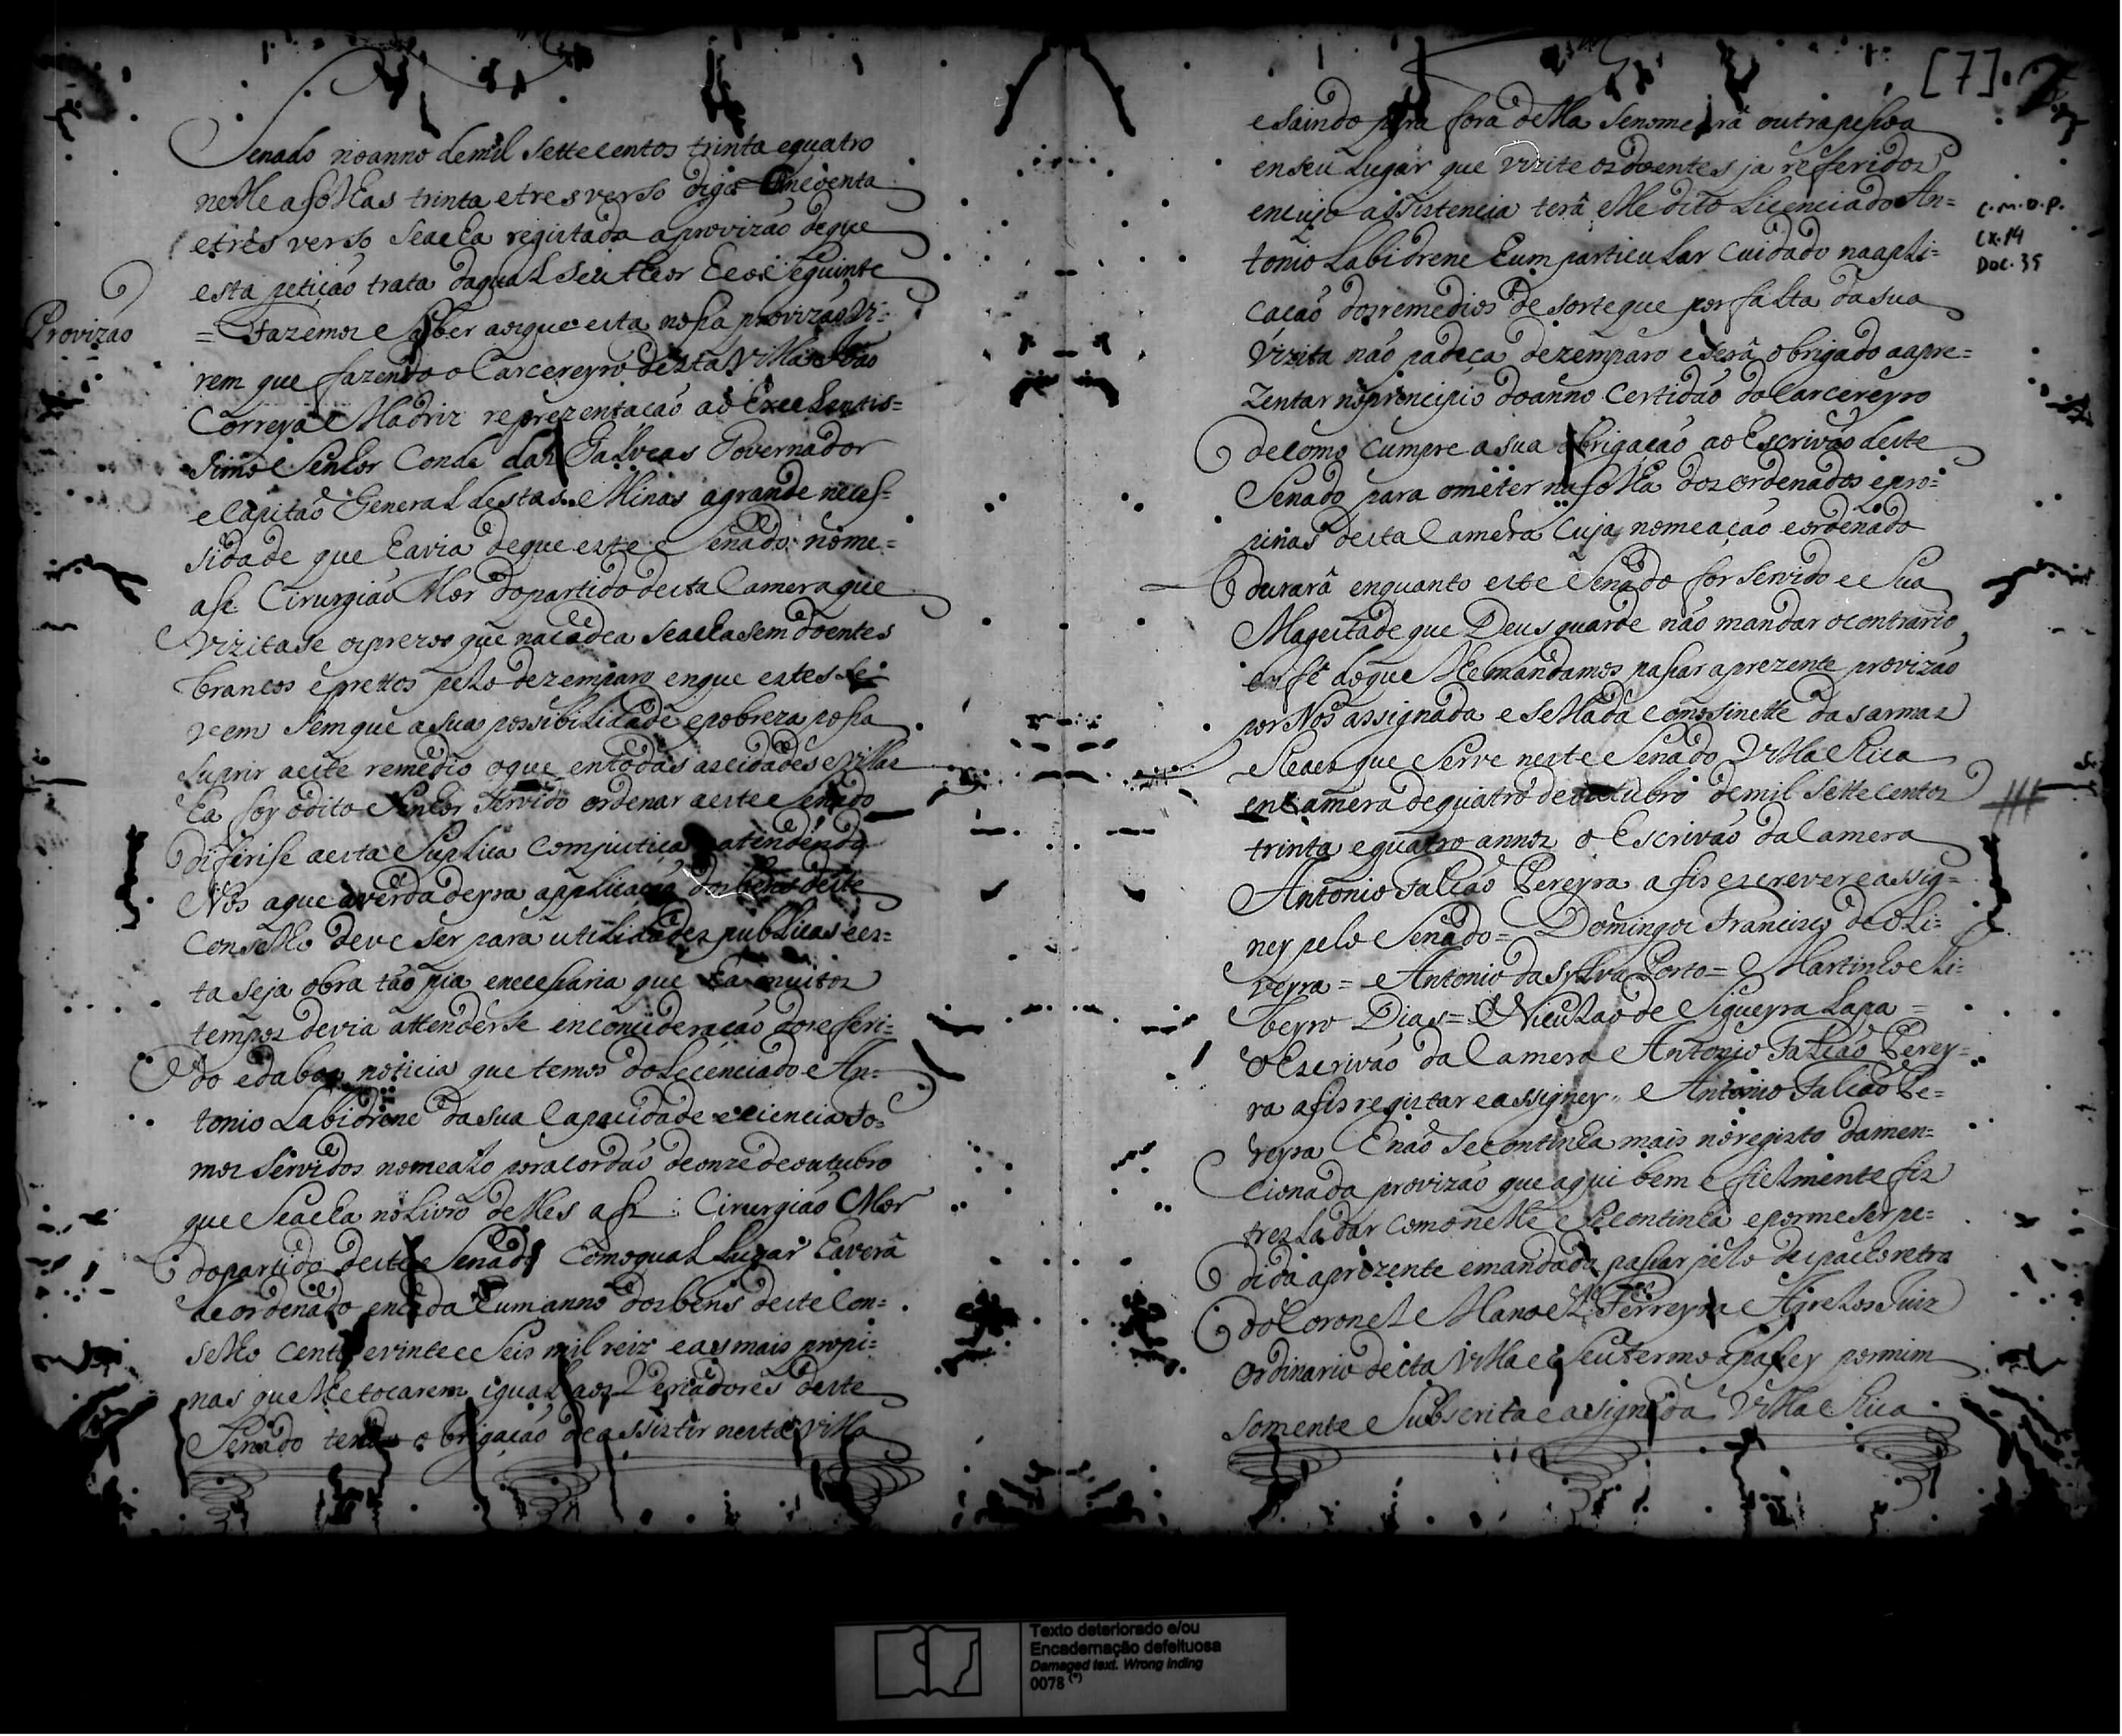 Senado no anno de mil Settecentos trinta e quatro
nelle a folhas trinta e tres verso digo Cincoenta
e tres verso Se acha registada a provizão de que
esta petição trata da qual Seu theor he o Seguinte
Provizão
= Fazemos Saber aos que esta nossa provizão vi-
rem que fazendo o Carcereyro desta Villa João
Correya Madriz reprezentacão ao Excelentis=
simo Senhor Conde das Galveas Governador
e Capitão General destas Minas a grande neces=
sidade que havia de que este Senado nome=
ase Cirurgião Mor do partido desta Camera que
Vizitase os prezos que na cadea Se achasem doentes
brancos e prettos pelo dezemparo en que estes Se
vem Sem que a sua possibilidade e pobreza possa
Suprir a este remedio o que en todas as cidades e villas
ha foy o dito Senhor Servido ordenar a este Senado
diferise a esta Suplica com justiça e atendendo
Nós a que a verdadeyra applicação dos bens deste
Conselho deve ser para utilidades publicas e es=
ta seja obra tão pia e necessaria que ha muitos
tempos devia attenderse en consideração do referi=
do e da boa noticia que temos do Lecenciado An=
tonio Labedrene da sua Capacidade e siencia So=
mos Servidos nomealo por acordão de onze de outubro
que Se acha no Livro delles a f.. Cirurgião Mor
do partido deste Senado Com o qual Lugar haverá
de ordenado en cada hum anno dos bens deste Con=
selho cento e vinte e Seis mil reiz e as mais propi=
nas que lhe tocarem igual aos Vereadores deste
Senado tendo obrigação de assistir nesta Villa
[7]. 2
e saindo para fora della Se nomeará outra pessoa
en seu Lugar que vizite os doentes ja referidos
en cujo assistencia terá elle dito Licenciado An=
tonio Labidrene hum particular cuidado na apli=
cação dos remedios de sorte que por falta da sua
Vizita não padeça dezemparo e será obrigado a apre=
Zentar no principio do anno Certidão do Carcereyro
de como cumpre a sua obrigação ao Escrivão deste
Senado para o meter na folha dos ordenados e pro=
pinas desta Camera Cuja nomeação e ordenado
durará enquanto este Senado for Servido e Sua
Magestade que Deus guarde não mandar o contrario
en fé do que lhe mandamos passar a prezente provizão
por Nós assignada e Sellada com o sinette das armas
Reaes que Serve neste Senado Villa Rica
en Camera de quatro de outubro de mil Sette centos
trinta e quatro annos o Escrivão da Camera
Antonio Falcão Pereyra a fis escrever e assig=
ney pelo Senado = Domingos Francisco de Oli=
veyra = Antonio da Sylva Porto = Martinho Ri=
beyro Dias = Niculao de Sigueyra Lapa =
o Escrivão da Camera Antonio Falcão Perey=
ra a fis registar e assigney .. Antonio Falcão Pe=
reyra E não Se continha mais no registo da men=
cionada provizão que aqui bem e fielmente fis
tresladar como nelle Se continha e por me ser pe=
dida a prezente e mandada passar pelo despacho retro
do Coronel Manoel Ferreyra Agrelos Juiz
ordinario desta Villa e Seu termo a passey por mim
Somente Subscrita e asignada Villa Rica
C.M.O.P.
CX.14
DOC.35
Texto deteriorado e/ou
Encadernação defeituosa
Damaged text. Wrong inding
0078 (*)